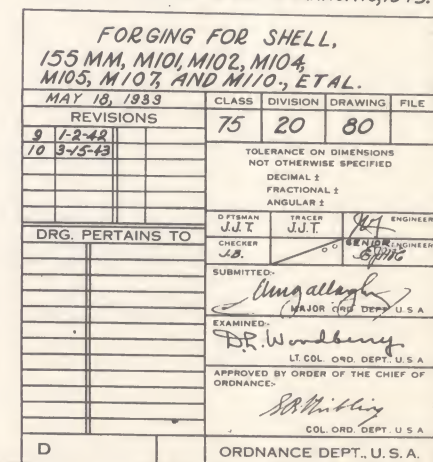 FORGING FOR SHELL,
155 MM, M101, M102, M104,
M105, M107, AND M110., ET AL.
MAY 18, 1933
REVISIONS
9 1-2-42
10 3-15-43
CLASS DIVISION DRAWING FILE
75 20 80
TOLERANCE ON DIMENSIONS
NOT OTHERWISE SPECIFIED
DECIMAL ±
FRACTIONAL ±
ANGULAR ±
DRG. PERTAINS TO
D FTSMAN TRACER ENGINEER
J.J.T. J.J.T.
CHECKER SENIOR ENGINEER
J.B.
SUBMITTED:-
MAJOR ORD. DEPT. U.S.A
EXAMINED:-
D.R. Woodberry
LT. COL. ORD. DEPT. U.S.A
APPROVED BY ORDER OF THE CHIEF OF
ORDNANCE:-
COL. ORD. DEPT. U.S.A
D
ORDNANCE DEPT., U. S. A.